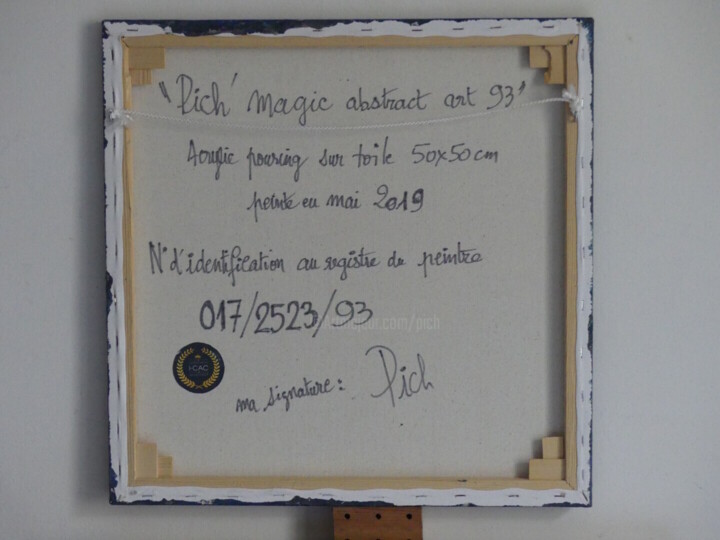 "Pich' magic abstract art 93"
Acrylic pouring sur toile 50x50cm
peinte en mai 2019
N° d'identification au registre du peintre
017/2523/93
I-CAC
ma signature: Pich